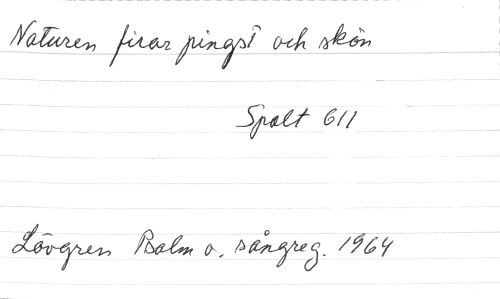 Naturen firar pingst och skön
Spalt 611
Lövgren Psalm o. sångreg. 1964